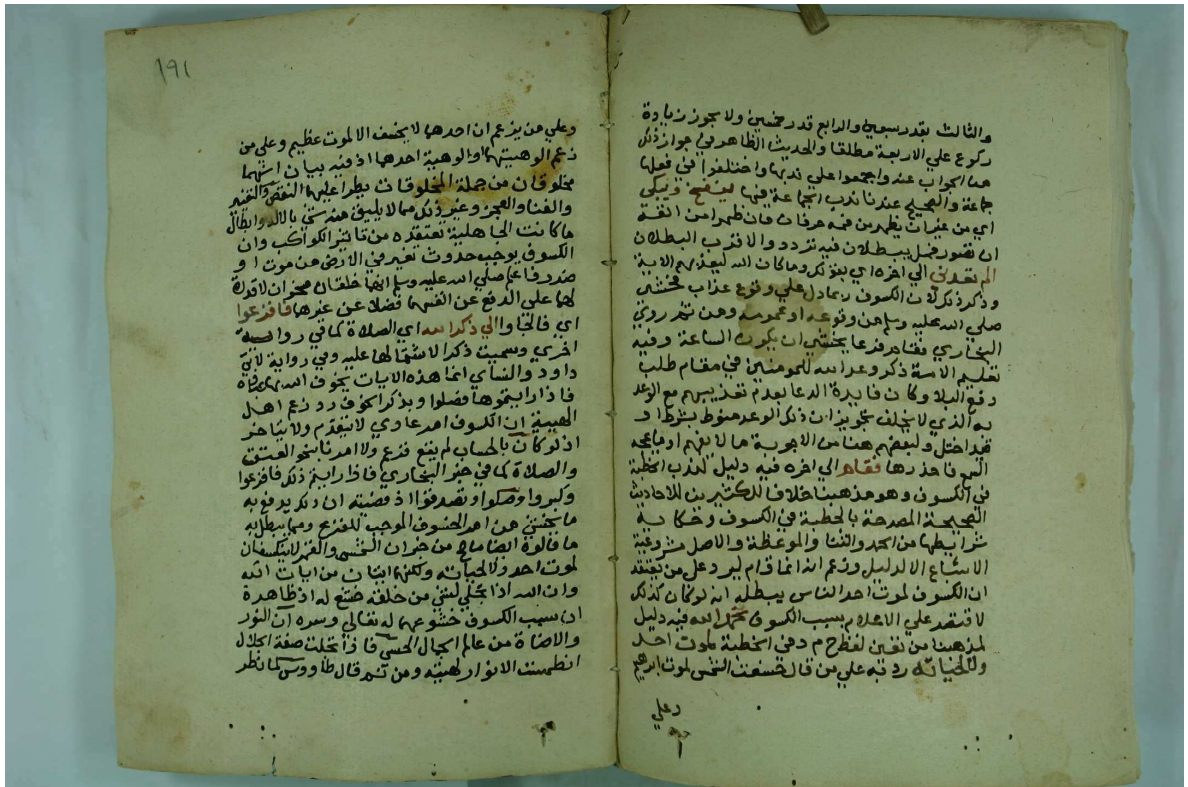 والثالث بقدر سبعين والرابع قدر خمسين ولا يجوز زيادة
ركوع علي الاربعة مطلقا والحديث الظاهر في جواز ذلك
مما اجواب عنه واجمعوا علي ندبها واختلفوا في فعلها
جماعة والصحيح عندنا ندب الجماعة فيها ينفخ ويبكي
اي من غير ان يظهر من فمه حرفان فان ظهرا من انفه
ان تصور فهل يبطلان فيه تردد والاقرب البطلان
الم تعدني الي اخره اي بقولك وما كان الله ليعذبهم الاية
وذكر ذلك لان الكسوف ربما دل علي وقوع عذاب فخشي
صلي الله عليه وسلم من وقوعه او عمومه ومن ثم روي
البخاري فقام فزعا يخشي ان يكون الساعة وفيه
تعليم الامة ذكر وعد الله للمومنين في مقام طلب
دفع البلا وكان فايدة الدعا بعدم تعذيبهم مع الوعد
به الذي لا يخلف تجويز ان ذلك الوعد منوط بشرط او
قيد اختل ولبعضهم هنا من الاجوبة ما لا يفهم او يمجه
السمع فاحذرها فقام الي اخره فيه دليل لندب الخطبة
في الكسوف وهو مذهبنا خلافا للكثيرين للاحاديث
الصحيحة المصرحة بالخطبة في الكسوف وحكاية
شرايطها من الحمد والثنا والموعظة والاصل مشروعية
الاتباع الا لدليل وزعم انه انما قام ليرد علي من يعتقد
ان الكسوف لموت احد الناس يبطله انه لو كان كذلك
لاقتصر علي الاعلام بسبب الكسوف فحمد الله فيه دليل
لمذهبنا من تعين لفظ ح م د في الخطبة لموت احد
ولا لحياته رد به علي من قال خسفت الشمس لموت ابرهيم
وعلي
191
وعلي من يزعم ان احدهما لا يخسف الا لموت عظيم وعلي من
زعم الوهيتهما والوهية احدهما اذ فيه بيان انهما
مخلوقان من جملة المخلوقات يطرا عليهما النقص والتغير
والفنا والعجز وغير ذلك مما لا يليق منه شي بالاله وابطال
ما كانت الجاهلية تعتقده من تاثير الكواكب وان
الكسوف يوجب حدوث تغير في الارض من موت او
ضرر فاعلم صلي الله عليه وسلم انهما خلقان مسخران لا قدرة
لهما علي الدفع عن انفسهما فضلا عن غيرهما فافزعوا
اي فالجاوا الي ذكر الله اي الصلاة كما في رواية
اخري وسميت ذكرا لاشتمالها عليه وفي رواية لابي
داود والنساي انما هذه الايات يخوف الله بها عباده
فاذا رايتموها فصلوا وبذكر الخوف رد زعم اهل
الهيئة ان الكسوف امر عادي لا يتقدم ولا يتاخر
اذ لو كان بالحساب لم يقع فزع ولا امرنا بنحو العتق
والصلاة كما في خبر البخاري فاذا رايتم ذلك فافزعوا
وكبروا وصلوا وتصدقوا اذ قضيته ان ذلك يدفع به
ما يخشي من امر الخسوف الموجب للفزع ومما يبطل به
ما قالوه ايضا ما صح من خبر ان الشمس والقمر لا ينكسفان
لموت احد ولا لحياته ولكنهما ايتان من ايات الله
وان الله اذا تجلي لشي من خلقه خشع له اذ ظاهره
ان سبب الكسوف خشوعهما له تعالي وسره ان النور
والاضاة من عالم الجمال الحسي فاذا تجلت صفة الجلال
انطمست الانوار لهيبته ومن ثم قال طاووس لما نظر